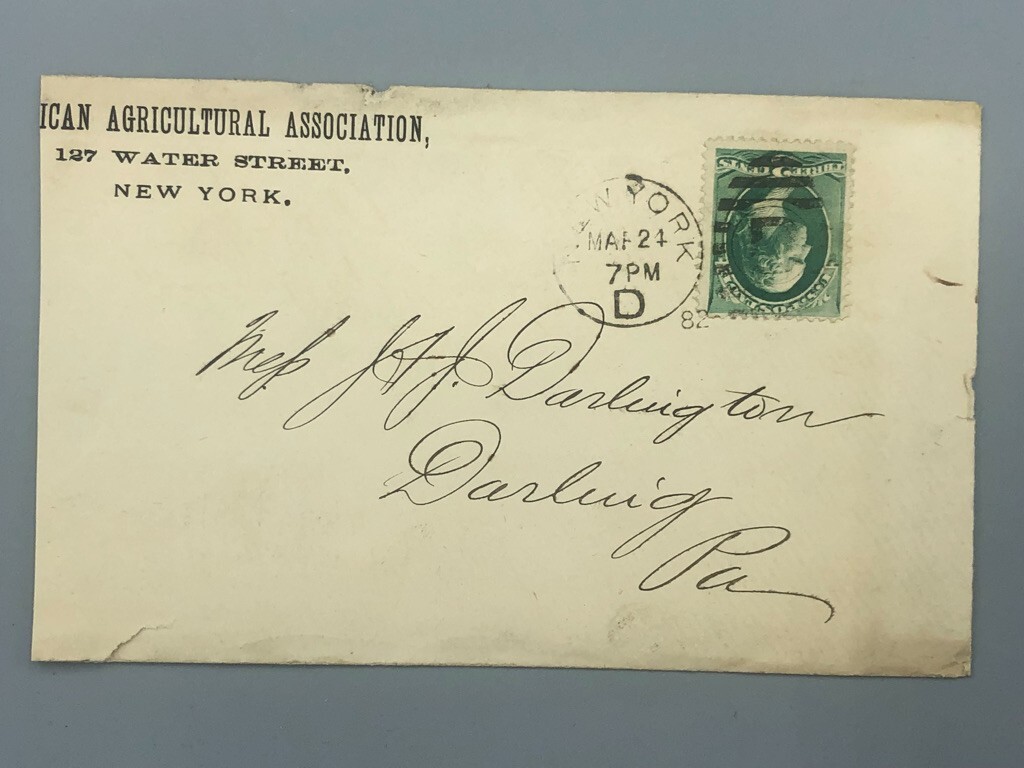 ICAN AGRICULTURAL ASSOCIATION,
127 WATER STREET.
NEW YORK.
NEW YORK
MAR 24
7PM
D
82
Mess J & J. Darlington
Darling
Pa